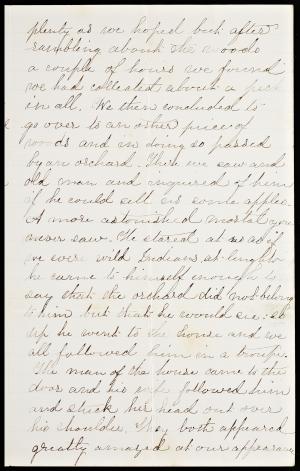 plenty as we hoped but after
rambling about the woods
a couple of hours we found
we had collected about a peck
in all. We then concluded to
go over to another piece of
woods and in doing so passed
by an orchard. There we saw an
old man and inquired of him
if he could sell us some apples.
A more astonished mortal you
never saw. He stared at us as if
we were wild Indians, at length
he came to himself enough to
say that the orchard did not belong
to him but that he would see. So
up he went to the house and we
all followed him in a troupe.
The man of the house came to the
door and his wife followed him
and stuck her head out over
his shoulder. They both appeared
greatly amazed at our appearance